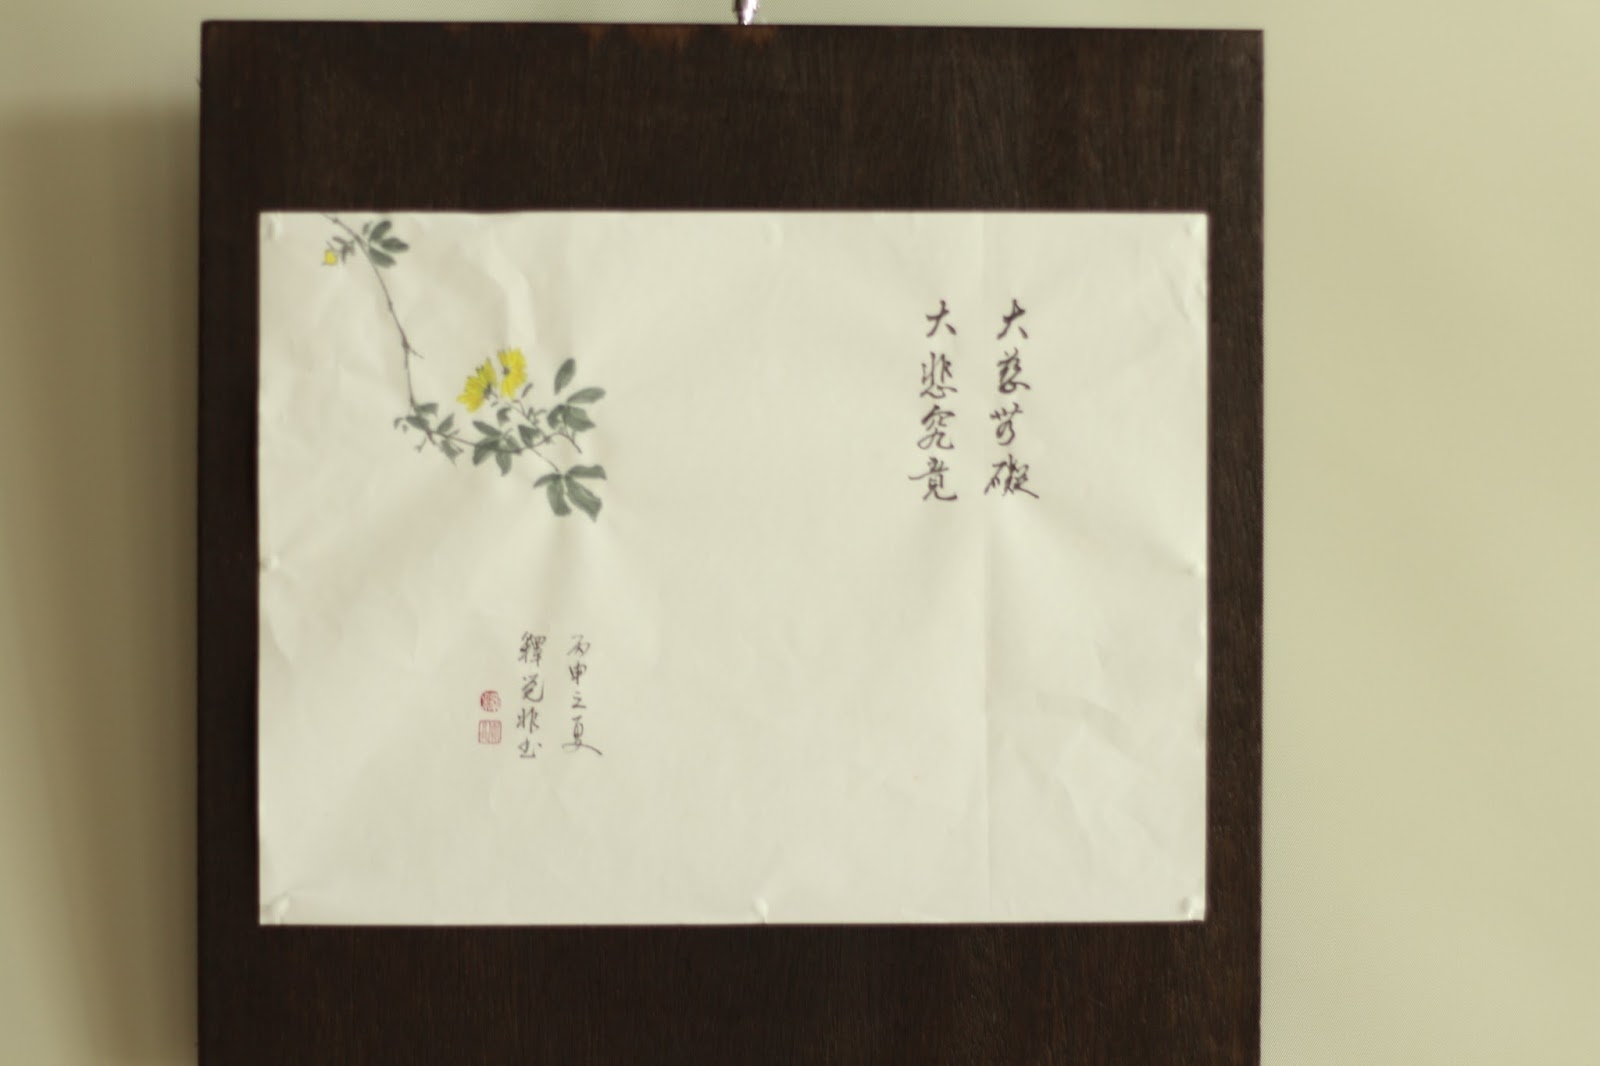 大慈無礙
大悲究竟
丙申之夏
釋覺非书